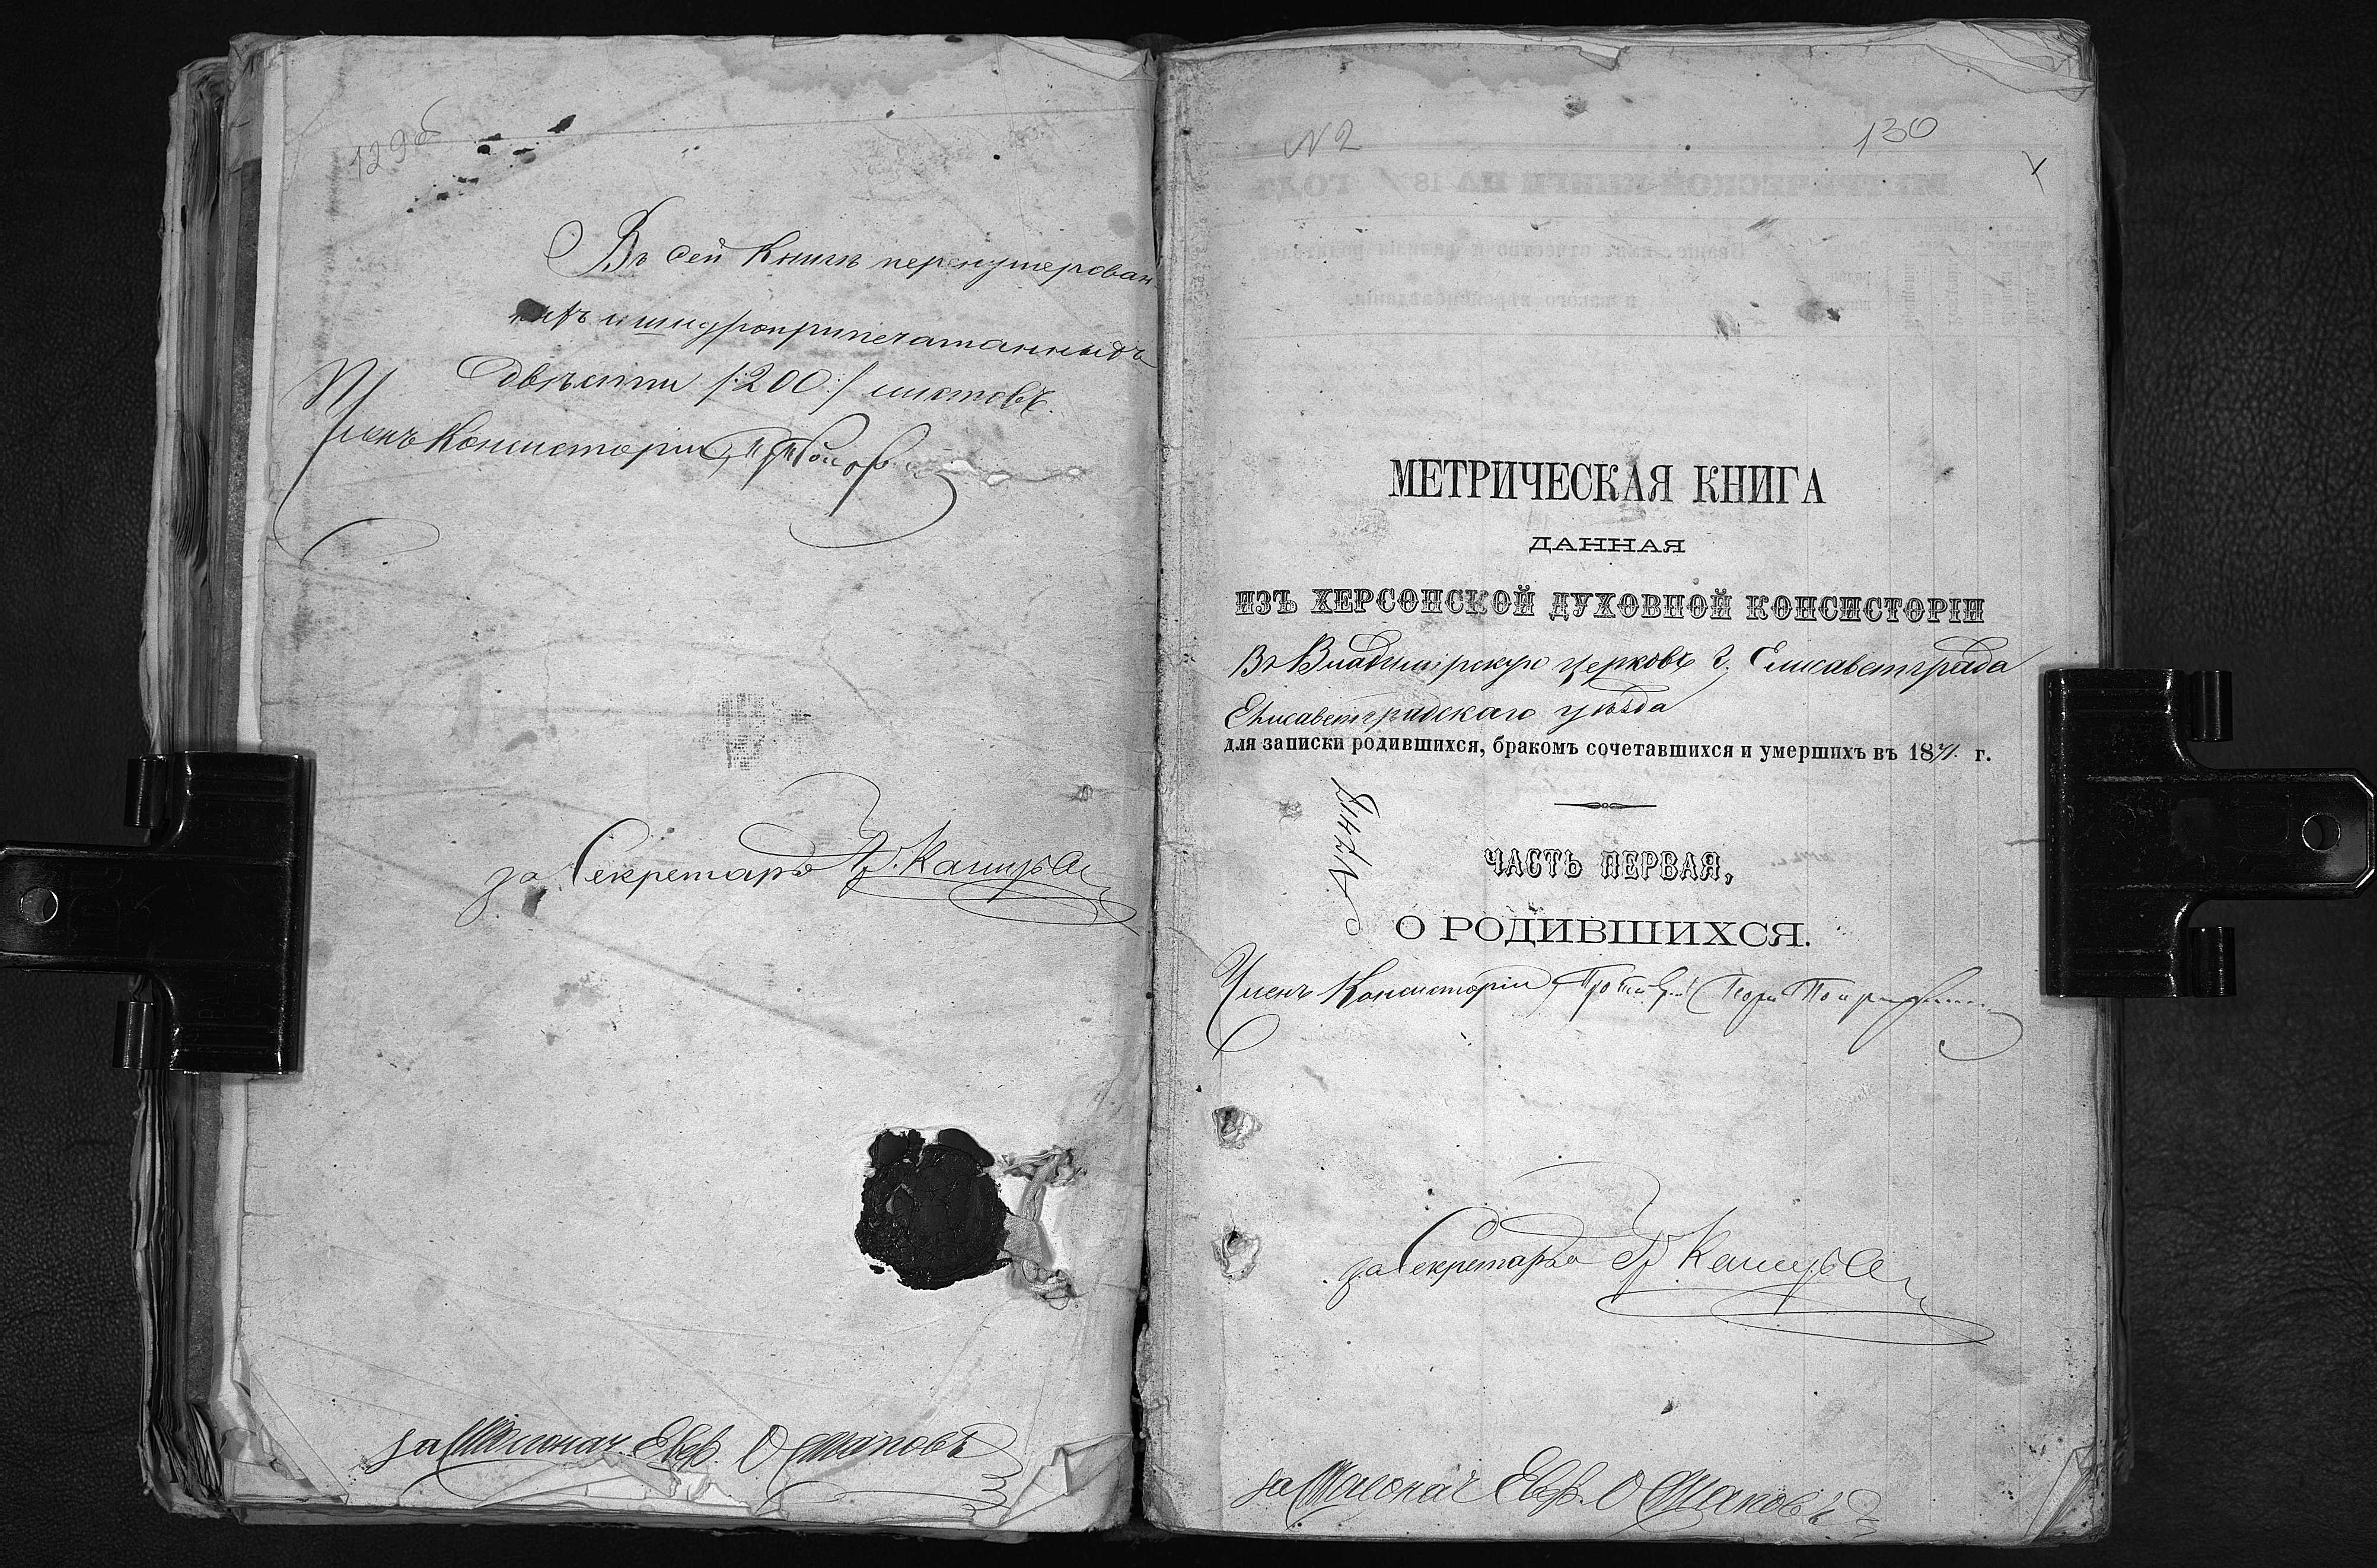 129об
Въ сей Книгѣ перенумерован
ныхъ и шнуроприпечатанныхъ
двѣсти /:200:/ листовъ.
Членъ Консисторіи
за Секретаря Гр. Кашуба
за Столонач. Евф. Остаповъ
N 2
130
МЕТРИЧЕСКАЯ КНИГА
ДАННАЯ
ИЗЪ ХЕРСОНСКОЙ ДУХОВНОЙ КОНСИСТОРІИ
Въ Владимірскую церковь г. Елисаветграда
Елисаветградскаго уѣзда
для записки родившихся, бракомъ сочетавшихся и умершихъ въ 1871. г.
ЧАСТЬ ПЕРВАЯ,
О РОДИВШИХСЯ.
Членъ Консисторіи
за Секретаря Гр Кашуба
за Столонач Евф. Остаповъ